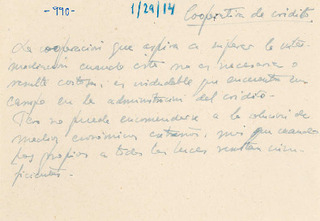 -990-
1/29/14
Cooperativa de crédito.
La cooperación que aspira a superar la inter-
mediación cuando esta no es necesaria o
resulta costosa, es indudable que encuentra un
campo en la administración del crédito.
Pero no puede encomendarse a la solución de
medios económicos extraños, sino que cuando
los propios a todas las luces resultan insu-
ficientes.